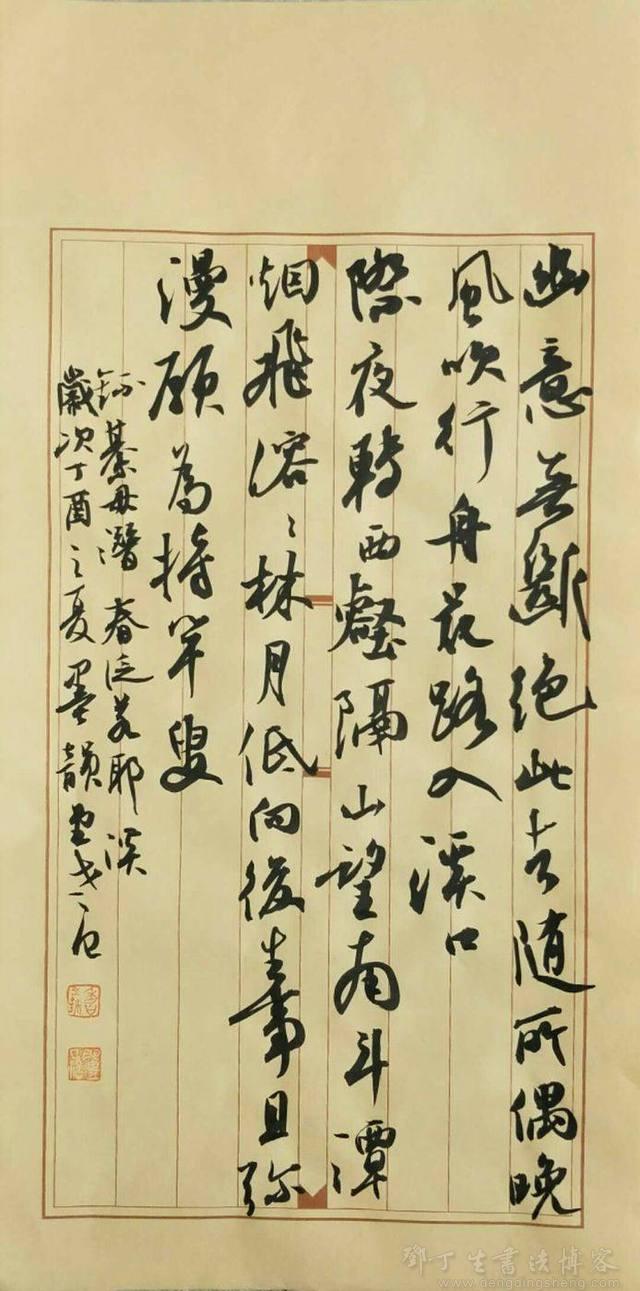 幽意無斷絕此去随所偶晚
風吹行舟花路入溪口
際夜轉西壑隔山望南斗潭
烟飛溶〻林月低向後生事且弥
漫願為持竿叟
錄綦毋潛春泛若耶溪
歲次丁酉之夏墨韻堂
鄧丁生書法博客
www.dengdingsheng.com